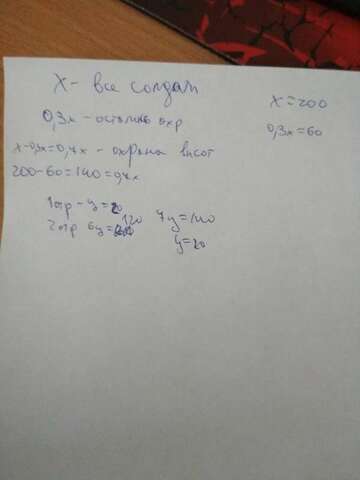 X - все солдат
X = 200
0,3x - остались охр
0,3x = 60
x - 0,3x = 0,7x - охрана высот
200 - 60 = 140 = 0,7x
1 отр - y = 20
7y = 140
2 отр 6y = 120
y = 20